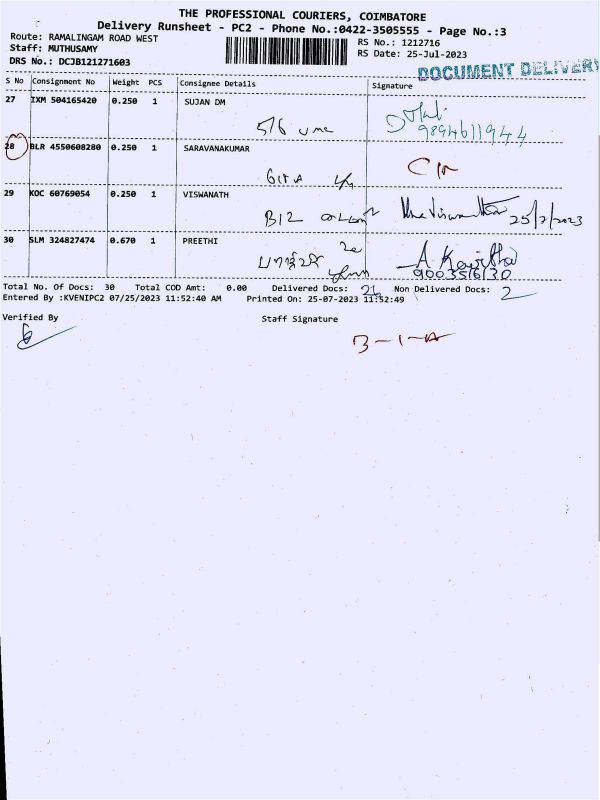 THE PROFESSIONAL COURIERS, COIMBATORE
Delivery Runsheet - PC2 - Phone No.:0422-3505555 - Page No.:3
Route: RAMALINGAM ROAD WEST
RS No.: 1212716
Staff: MUTHUSAMY
RS Date: 25-Jul-2023
DRS No.: DCJB121271603
DOCUMENT DELIVERY
S No Consignment No Weight PCS Consignee Details Signature
27 IXM 504165420 0.250 1 SUJAN DM
516
9894611944
28 BLR 4550608280 0.250 1 SARAVANAKUMAR
29 KOC 60769054 0.250 1 VISWANATH
B12
25/7/2023
30 SLM 324827474 0.670 1 PREETHI
A. Kavitha
9003556130
Total No. Of Docs: 30 Total COD Amt: 0.00 Delivered Docs: Non Delivered Docs: 2
Entered By :KVENIPC2 07/25/2023 11:52:40 AM Printed On: 25-07-2023 11:52:49
Verified By Staff Signature